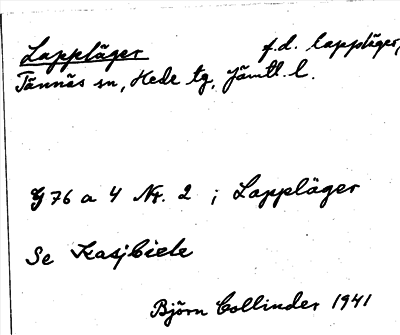 Lappläger f.d. lappläger,
Tännäs sn, Hede tg, Jämtl. l.
G 76 a 4 Nr. 2 ; Lappläger
Se Kasjbiele
Björn Collinder 1941